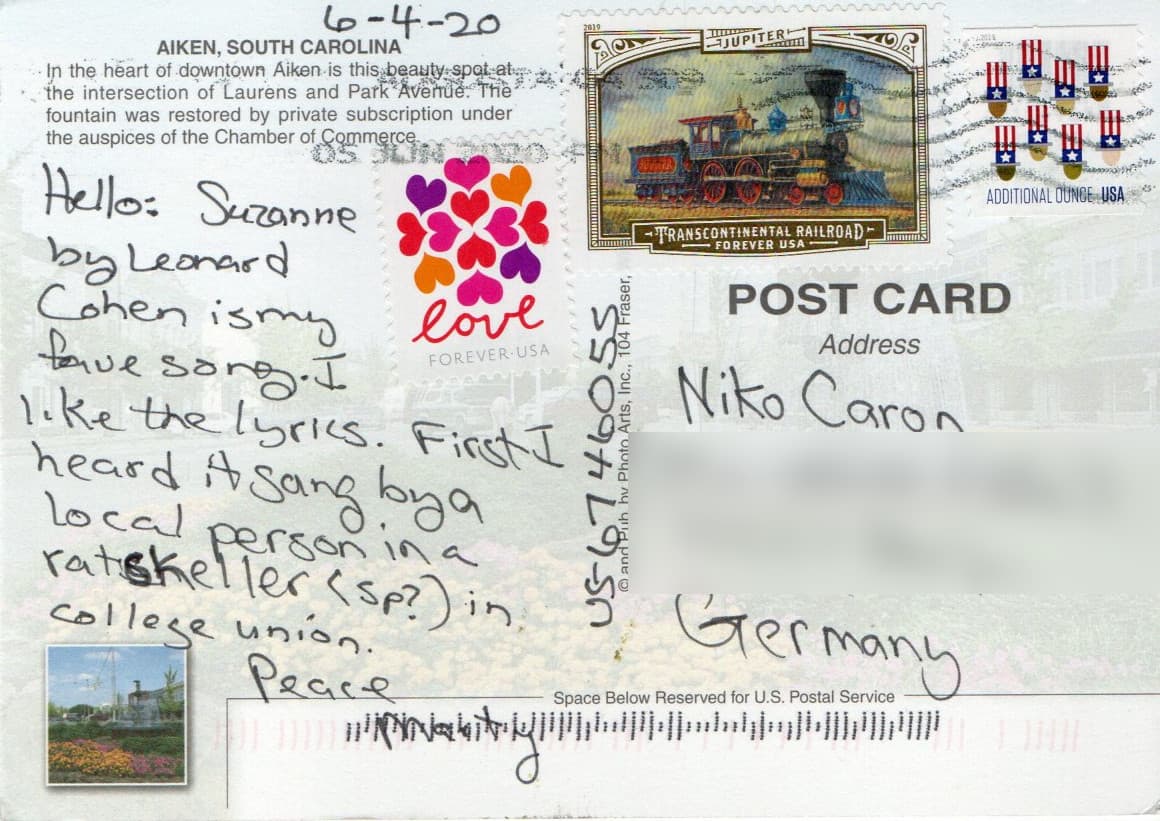 6-4-20
AIKEN, SOUTH CAROLINA
In the heart of downtown Aiken is this beauty spot at
the intersection of Laurens and Park Avenue. The
fountain was restored by private subscription under
the auspices of the Chamber of Commerce.
05 JUN 2020
Hello: Suzanne
by Leonard
Cohen is my
fave song. I
like the lyrics. First I
heard it sang by a
local person in a
ratskeller (sp?) in
college union.
Peace
Marty
love
FOREVER·USA
2019
JUPITER
TRANSCONTINENTAL RAILROAD
FOREVER USA
ADDITIONAL OUNCE USA
US-6746055
© and Pub. by Photo Arts, Inc., 104 Fraser,
POST CARD
Address
Niko Caron
Germany
Space Below Reserved for U.S. Postal Service